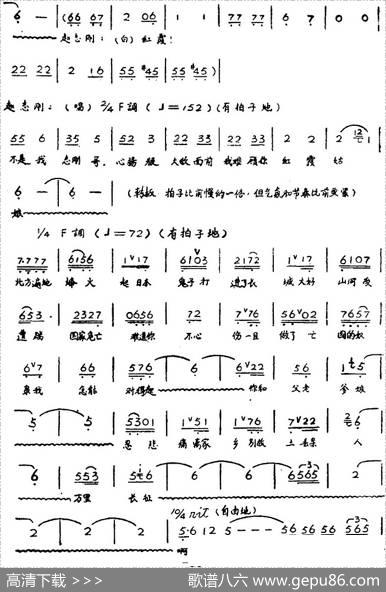 6 — | (66 67 | 2 06 | 1 | 1 | 77 77 | 6 7 | 0 0
赵志刚：(白) 红霞！
22 22 | 2 16 | 55 #45 | 55 #45) |
赵志刚：(唱) 2/4 F調 (♩=152) (有拍子地)
55 6 | 35 5 | 52 3 | 2 33 | 22 33 | 22 33 | 2 2 | 2 1
不是我 志刚 哥, 心肠狠 大敌面前 我难顾你 红霞 姑
6 — | 6 — | (转板 拍子比前慢的一倍, 但气氛和节奏比前更紧)
娘
1/4 F調 (♩=72) (有拍子地)
7777 | 6156 | 1∨17 | 6103 | 2172 | 1∨17 | 6107
北方遍地 烽火 起日本 鬼子打 进了长 城大好 山河
653 | 2327 | 0656 | 72 | 7∨76 | 56∨02 | 7657
遭 国家危亡 难道你 不心 伤一旦 做了 亡 国的奴
6∨7 | 66 | 576 | 6 | 6∨22 | 56 | 1 5
怎能 对得起 你和 父老
5 | 5 | 5301 | 1∨51 | 1∨76 | 7∨22 | 6
忍悲 痛离家 乡别故 土去亲 人
6 | 553 | 5 6 | 6 | 6 | 6565 | 2
万里 长征
10/4 rit (自由地)
2 | 2 | 2 | 5·6 12 5 — — — 56 56 56 565
啊
高清下载 >>>
歌谱八六 www.gepu86.com